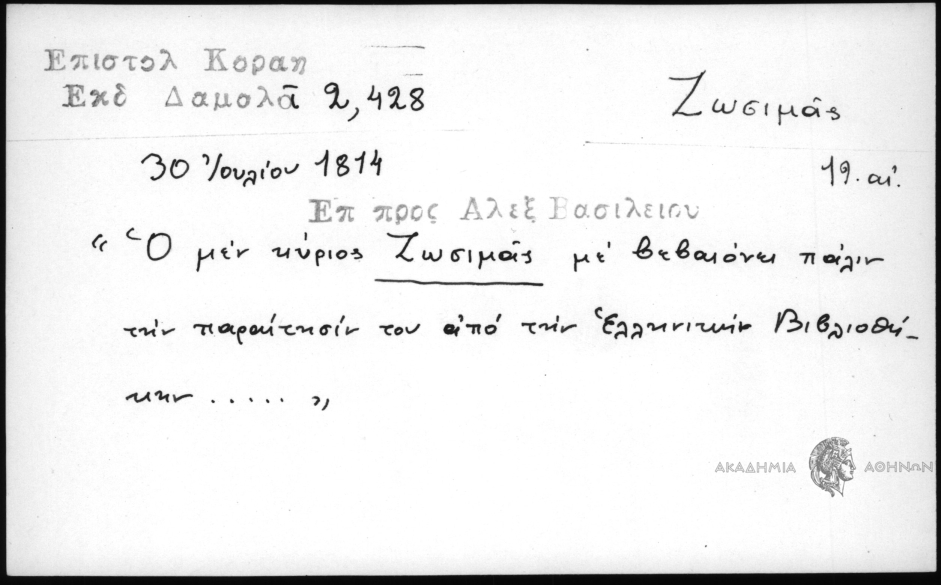 Επιστολ Κοραη
Εκδ Δαμαλᾶ 2,428
Ζωσιμᾶς
30 Ἰουλίου 1814
19. αἰ.
Επ προς Αλεξ Βασιλειου
“ Ὁ μέν κύριος Ζωσιμᾶς μέ βεβαιόνει πάλιν
τήν παραίτησίν του ἀπό τήν Ἑλληνικήν Βιβλιοθή-
κην ..... „
ΑΚΑΔΗΜΙΑ ΑΘΗΝΩΝ